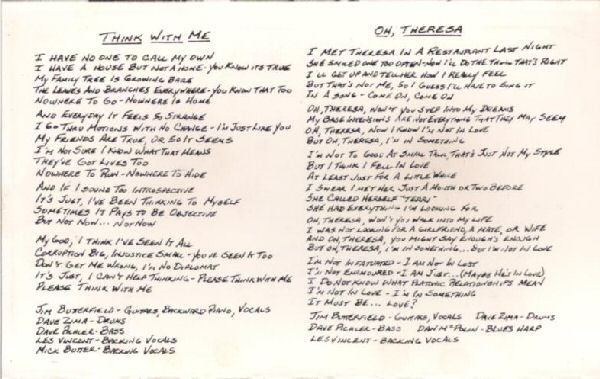 THINK WITH ME
I HAVE NO ONE TO CALL MY OWN
I HAVE A HOUSE BUT NOT A HOME - YOU KNOW IT'S TRUE
MY FAMILY TREE IS GROWING BARE
THE LEAVES AND BRANCHES EVERYWHERE - YOU KNOW THAT TOO
NOWHERE TO GO - NOWHERE IS HOME
AND EVERYDAY IT FEELS SO STRANGE
I GO THRU MOTIONS WITH NO CHANGE - I'M JUST LIKE YOU
MY FRIENDS ARE TRUE, OR SO IT SEEMS
I'M NOT SURE I KNOW WHAT THAT MEANS
THEY'VE GOT LIVES TOO
NOWHERE TO RUN - NOWHERE TO HIDE
AND IF I SOUND TOO INTROSPECTIVE
IT'S JUST, I'VE BEEN THINKING TO MYSELF
SOMETIMES IT PAYS TO BE OBJECTIVE
BUT NOT NOW... NOT NOW
MY GOD, I THINK I'VE SEEN IT ALL
CORRUPTION BIG, INJUSTICE SMALL - YOU'VE SEEN IT TOO
DON'T GET ME WRONG, I'M NO DIPLOMAT
IT'S JUST, I CAN'T HELP THINKING - PLEASE THINK WITH ME
PLEASE THINK WITH ME
JIM BUTERFIELD - GUITARS, BACKWARD PIANO, VOCALS
DAVE ZIMA - DRUMS
DAVE PICHLER - BASS
LES VINCENT - BACKING VOCALS
MICK BUTLER - BACKING VOCALS
OH, THERESA
I MET THERESA IN A RESTAURANT LAST NIGHT
SHE SMILED ONE TOO OFTEN - NOW I'LL DO THE THING THAT'S RIGHT
I'LL GET UP AND TELL HER HOW I REALLY FEEL
BUT THAT'S NOT ME, SO I GUESS I'LL HAVE TO SING IT
IN A SONG - COME ON, COME ON
OH, THERESA, WON'T YOU STEP INTO MY DREAMS
MY BASE INTENSIONS ARE NOT EVERYTHING THAT THEY MAY SEEM
OH, THERESA, NOW I KNOW I'M NOT IN LOVE
BUT OH, THERESA, I'M IN SOMETHING
I'M NOT TO GOOD AT SMALL TALK, THAT'S JUST NOT MY STYLE
BUT I THINK I FELL IN LOVE
AT LEAST JUST FOR A LITTLE WHILE
I SWEAR I MET HER JUST A MONTH OR TWO BEFORE
SHE CALLED HERSELF "TERRY"
SHE HAD EVERYTHING I'M LOOKING FOR
OH, THERESA, WON'T YOU WALK INTO MY LIFE
I WAS NOT LOOKING FOR A GIRLFRIEND, A MATE, OR WIFE
AND OH, THERESA, YOU MIGHT SAY ENOUGH'S ENOUGH
BUT OH, THERESA, I'M IN SOMETHING... BUT I'M NOT IN LOVE
I'M NOT INFATUATED - I AM NOT IN LOST
I'M NOT ENAMOURED - I AM JUST... (MAYBE HE'S IN LOVE)
I DO NOT KNOW WHAT PLATONIC RELATIONSHIPS MEAN
I'M NOT IN LOVE - I'M IN SOMETHING
IT MUST BE... LOVE?
JIM BUTERFIELD - GUITARS, VOCALS DAVE ZIMA - DRUMS
DAVE PICHLER - BASS DAWN - BLUES HARP
LES VINCENT - BACKING VOCALS